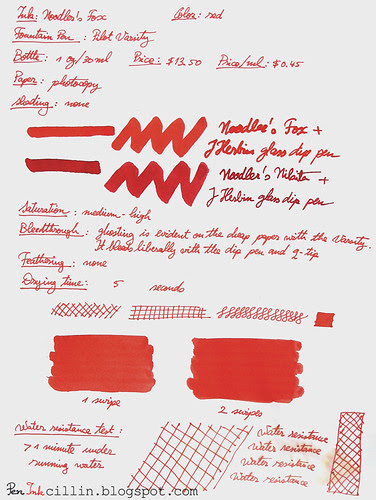 Ink: Noodler's Fox Color: red
Fountain Pen : Pilot Varsity
Bottle : 1 oz/30ml Price : $13.50 Price/ml : $0.45
Paper : photocopy
Shading : none
Noodler's Fox +
J Herbin glass dip pen
Noodler's Nikita +
J Herbin glass dip pen
Saturation : medium-high
Bleedthrough : ghosting is evident on the cheap paper with the Varsity.
It bleeds liberally with the dip pen and q-tip
Feathering : none
Drying time : 5 seconds
1 swipe
2 swipes
Water resistance test :
> 1 minute under
running water
Water resistance
Water resistance
Water resistance
Water resistance
Pen Ink cillin.blogspot.com